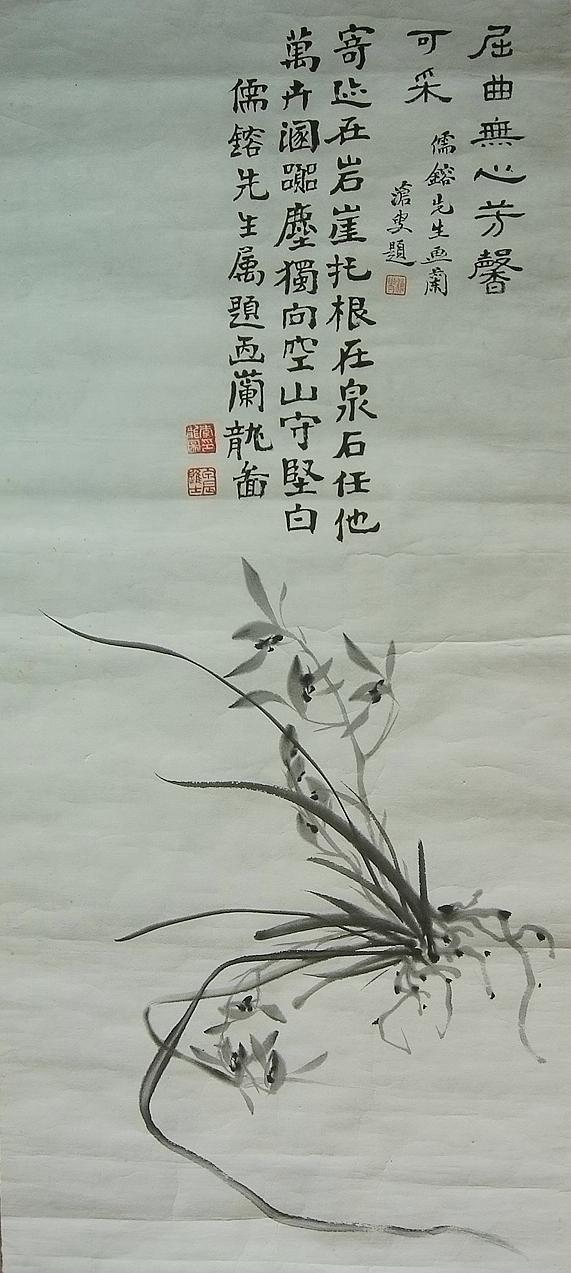 屈曲無心芳馨
可采
儒鎔先生画蘭
滄叟題
寄迹在岩崖托根在泉石任他
萬卉溷囂塵獨向空山守堅白
儒鎔先生属題画蘭龍